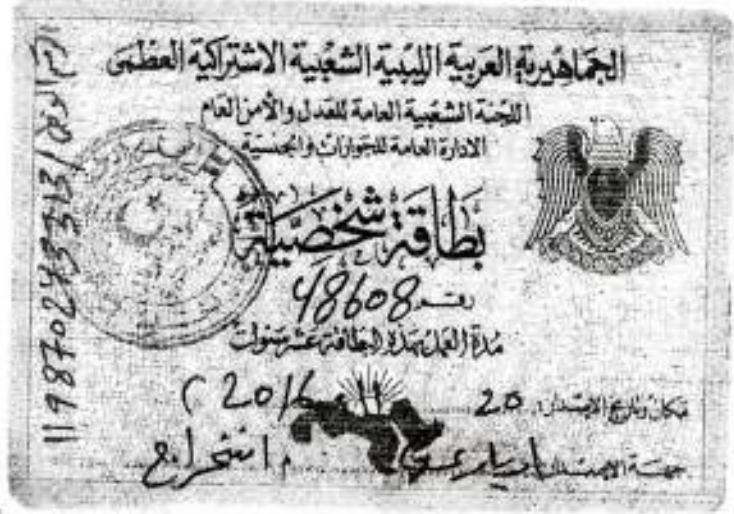 الجماهيرية العربية الليبية الشعبية الاشتراكية العظمى
اللجنة الشعبية العامة للعدل والأمن العام
الادارة العامة للجوازات والجنسية
بطاقة شخصية
رقم 48608
مدة العمل بهذه البطاقة عشر سنوات
مكان وتاريخ الاصدار: 20 11 2016
جهة الاصدار
الرقم الوطني / 119870243313